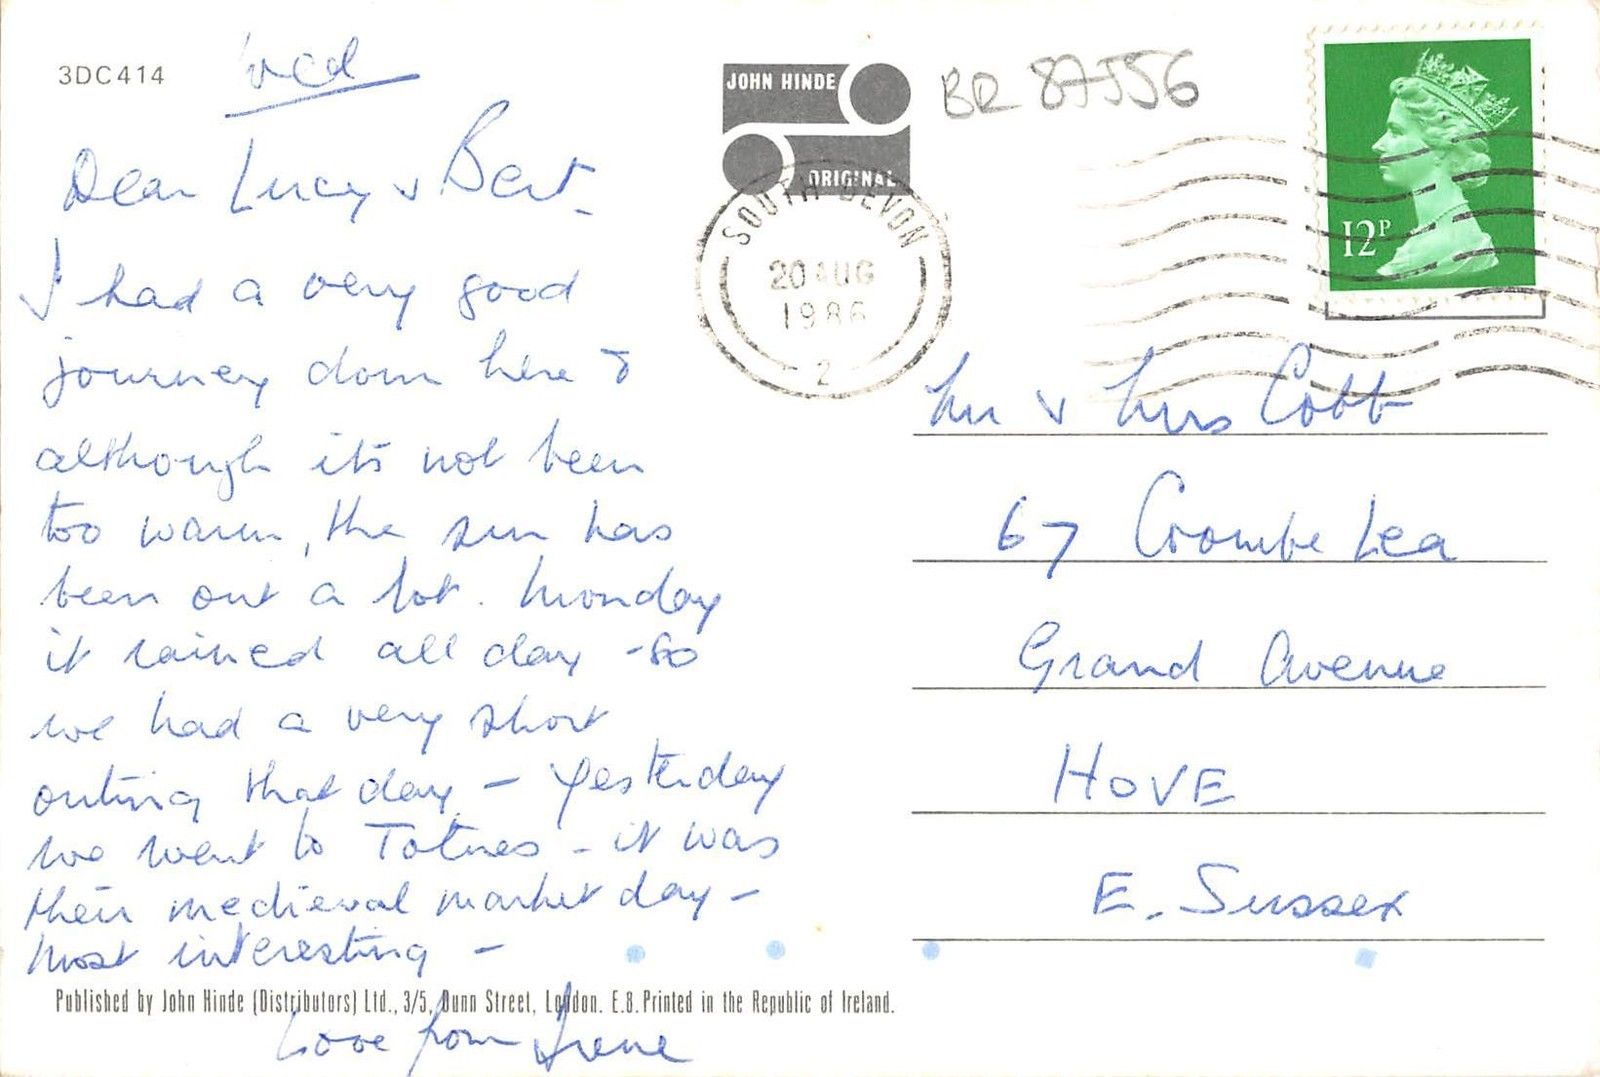 3DC414
Wed
Dear Lucy & Bert -
I had a very good
journey down here &
although its not been
too warm, the sun has
been out a lot. Monday
it rained all day - so
we had a very short
outing that day - Yesterday
we went to Totnes - it was
their medieval market day -
most interesting -
Love from Irene
Published by John Hinde (Distributors) Ltd., 3/5, Dunn Street, London. E.8. Printed in the Republic of Ireland.
JOHN HINDE
ORIGINAL
BR 87556
SOUTH DEVON
20 AUG
1986
2
12P
Mr & Mrs Cobb
67 Coombe Lea
Grand Avenue
HOVE
E. Sussex